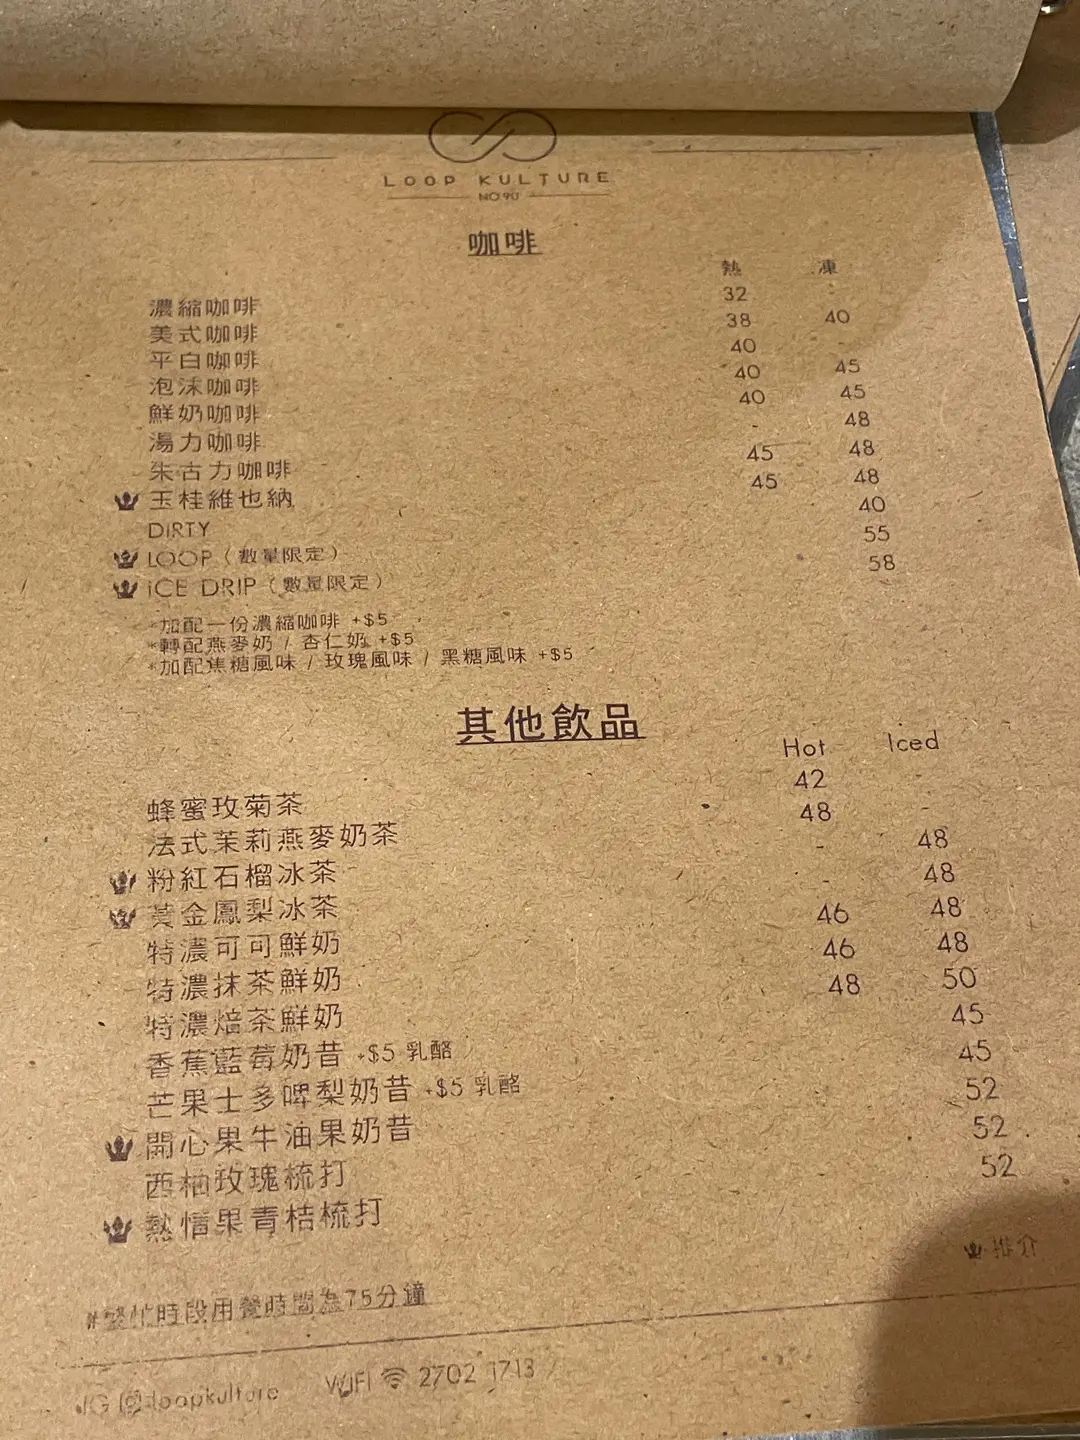 LOOP KULTURE
NO 90
咖啡
熱 凍
濃縮咖啡 32 -
美式咖啡 38 40
平白咖啡 40 -
泡沫咖啡 40 45
鮮奶咖啡 40 45
湯力咖啡 - 48
朱古力咖啡 45 48
玉桂維也納 45 48
DIRTY 40
LOOP（數量限定） 55
iCE DRIP（數量限定） 58
*加配一份濃縮咖啡 +$5
*轉配燕麥奶 / 杏仁奶 +$5
*加配焦糖風味 / 玫瑰風味 / 黑糖風味 +$5
其他飲品
Hot Iced
蜂蜜玫菊茶 42
法式茉莉燕麥奶茶 48 -
粉紅石榴冰茶 - 48
黃金鳳梨冰茶 48
特濃可可鮮奶 46 48
特濃抹茶鮮奶 46 48
特濃焙茶鮮奶 48 50
香蕉藍莓奶昔 +$5 乳酪 45
芒果士多啤梨奶昔 +$5 乳酪 45
開心果牛油果奶昔 52
西柚玫瑰梳打 52
熱情果青桔梳打 52
推介
#繁忙時段用餐時間為75分鐘
IG @loopkulture WIFI 2702 1713